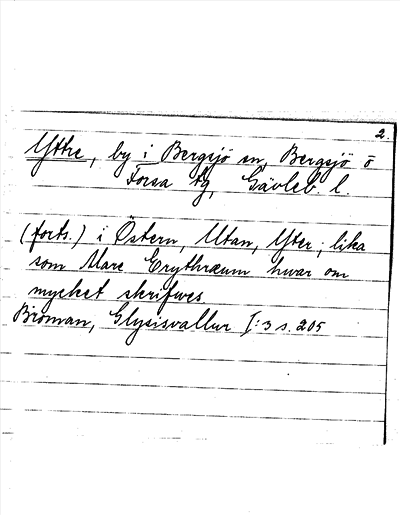 2.
Yttre, by i Bergsjö sn, Bergsjö o
Forsa tg, Gävleb. l.
(forts.) i Östern, Utan, Yter; lika
som Mare Erythræum hwar om
mycket skrifwes
Broman, Glysisvallur I:3 s. 205